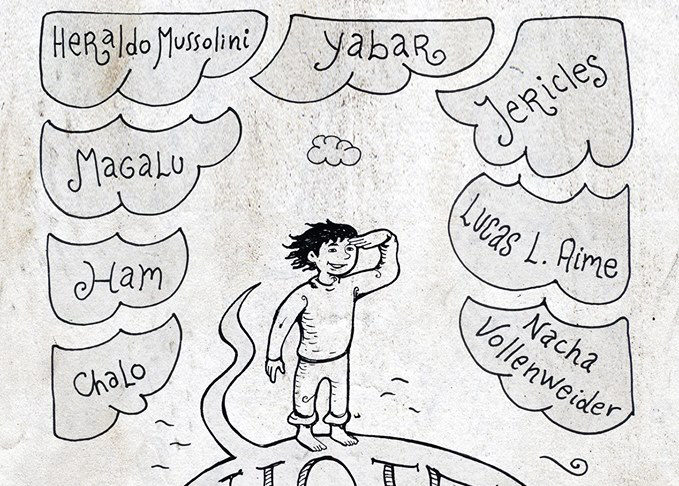 Heraldo Mussolini
Yabar
Jericles
Magalu
Lucas L. Aime
Ham
Nacha
Vollenweider
Chalo